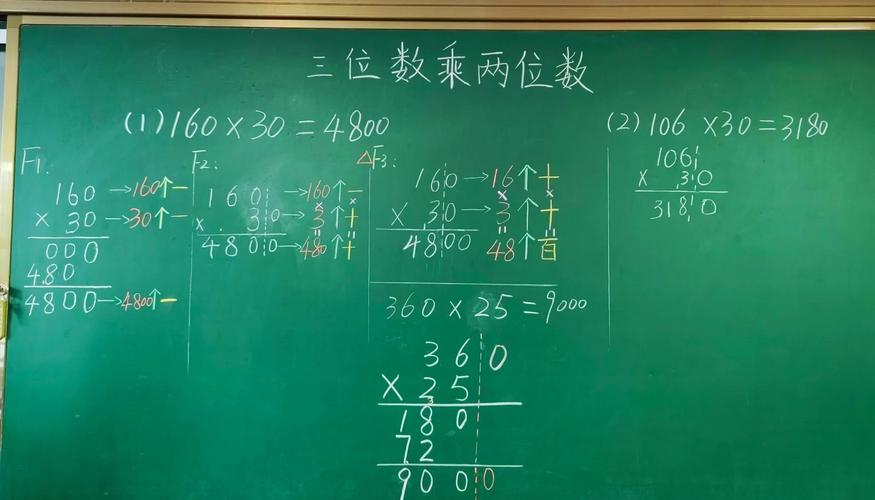 三位数乘两位数
(1)160×30=4800
F1:
160→160个一
×30→30个一
000
480
4800→4800个一
F2:
160→160个一
×30→3个十
4800→480个十
△F3:
160→16个十
×30→3个十
4800→48个百
360×25=9000
360
×25
180
72
9000
(2)106×30=3180
106
×30
3180